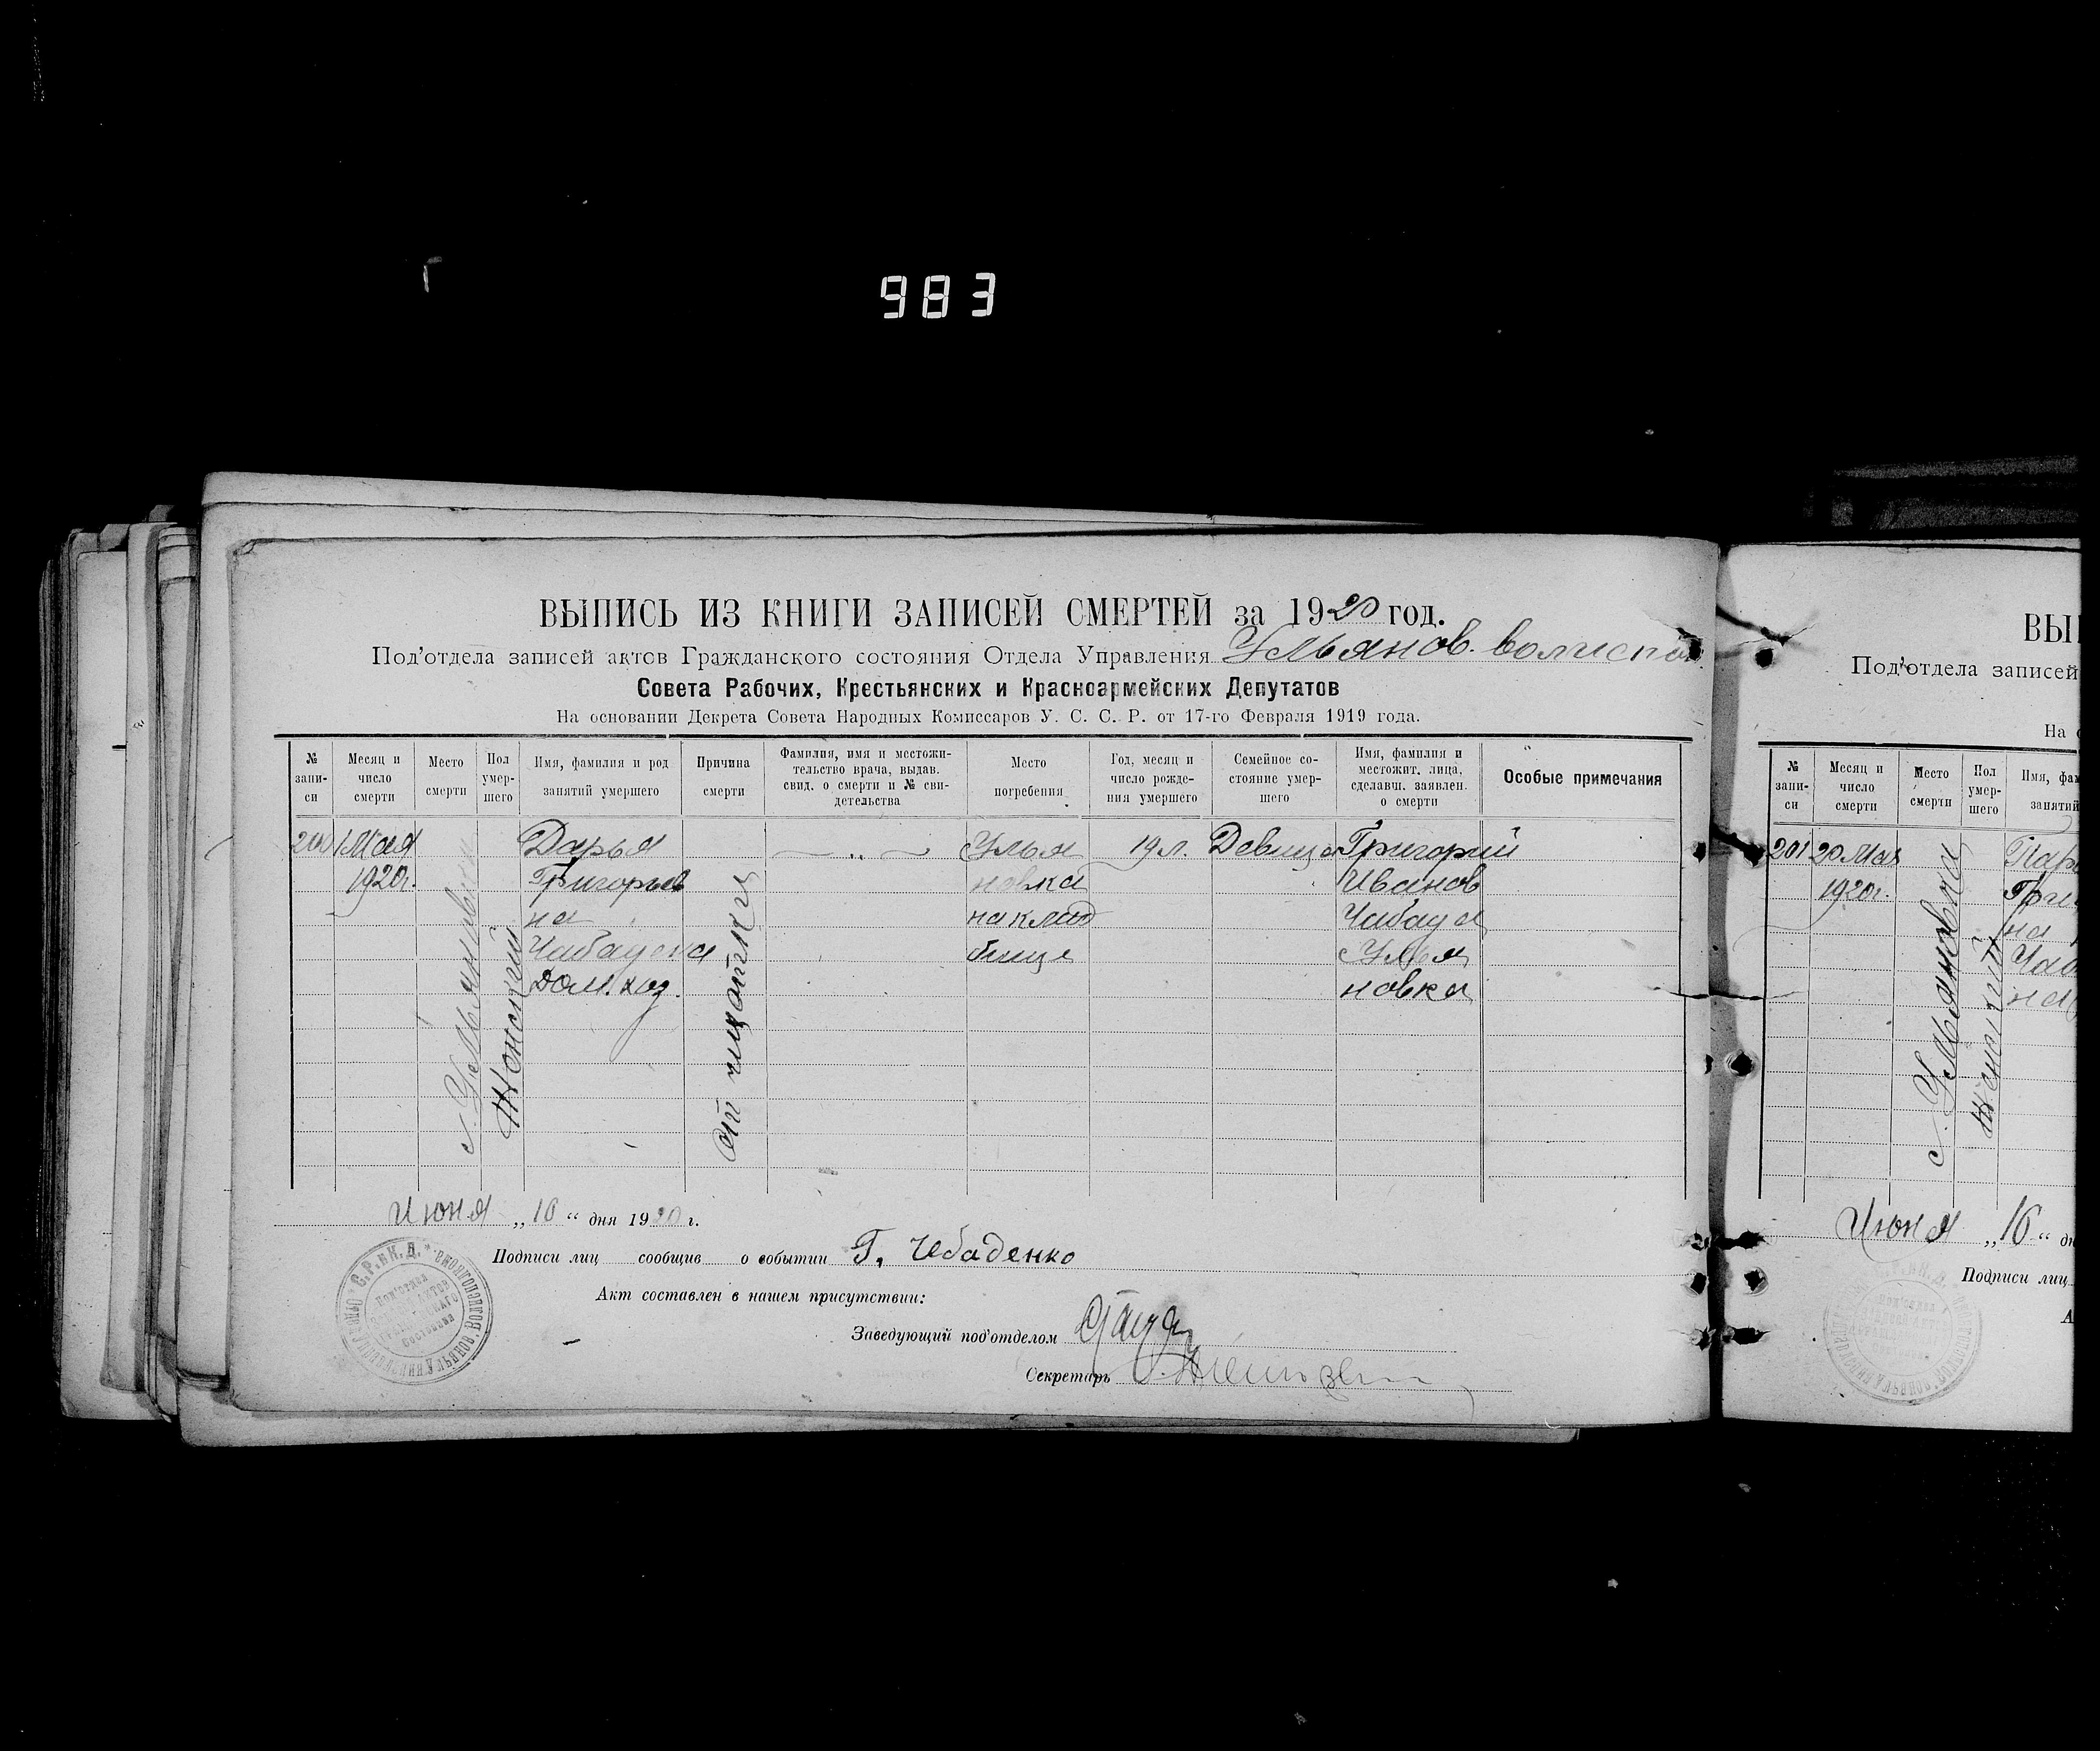 983
ВЫПИСЬ ИЗ КНИГИ ЗАПИСЕЙ СМЕРТЕЙ за 1920 год.
Под'отдела записей актов Гражданского состояния Отдела Управления Ульянов. волисполк
Совета Рабочих, Крестьянских и Красноармейских Депутатов
На основании Декрета Совета Народных Комиссаров У. С. С. Р. от 17-го Февраля 1919 года.
№ запи-
си
Месяц и
число
смерти
Место
смерти
Пол
умер-
шего
Имя, фамилия и род
занятий умершего
Причина
смерти
Фамилия, имя и местожи-
тельство врача, выдав.
свид. о смерти и № сви-
детельства
Место
погребения
Год, месяц и
число рожде-
ния умершего
Семейное со-
стояние умер-
шего
Имя, фамилия и
местожит. лица,
сделавш. заявлен.
о смерти
Особые примечания
200
1 Мая
1920г.
с. Ульяновка
Женский
Дарья
Григорьев
на
Дом. хоз.
от чахотки
— „ —
Улья
новка
на клад
бище
19 л.
Девица
Григорий
Иванов
Улья
новка
Июня „16“ дня 1920 г.
Подписи лиц сообщив о событии Г. Чебаденко
Акт составлен в нашем присутствии:
Заведующий под'отделом
Секретарь
ВЫП
Под'отдела записей
На о
№ запи-
си
Месяц и
число
смерти
Место
смерти
Пол
умер-
шего
Имя, фам
занятий
201
20 Мая
1920г.
с. Ульяновка
Женский
на
Июня „16“ дн
Подписи лиц
А